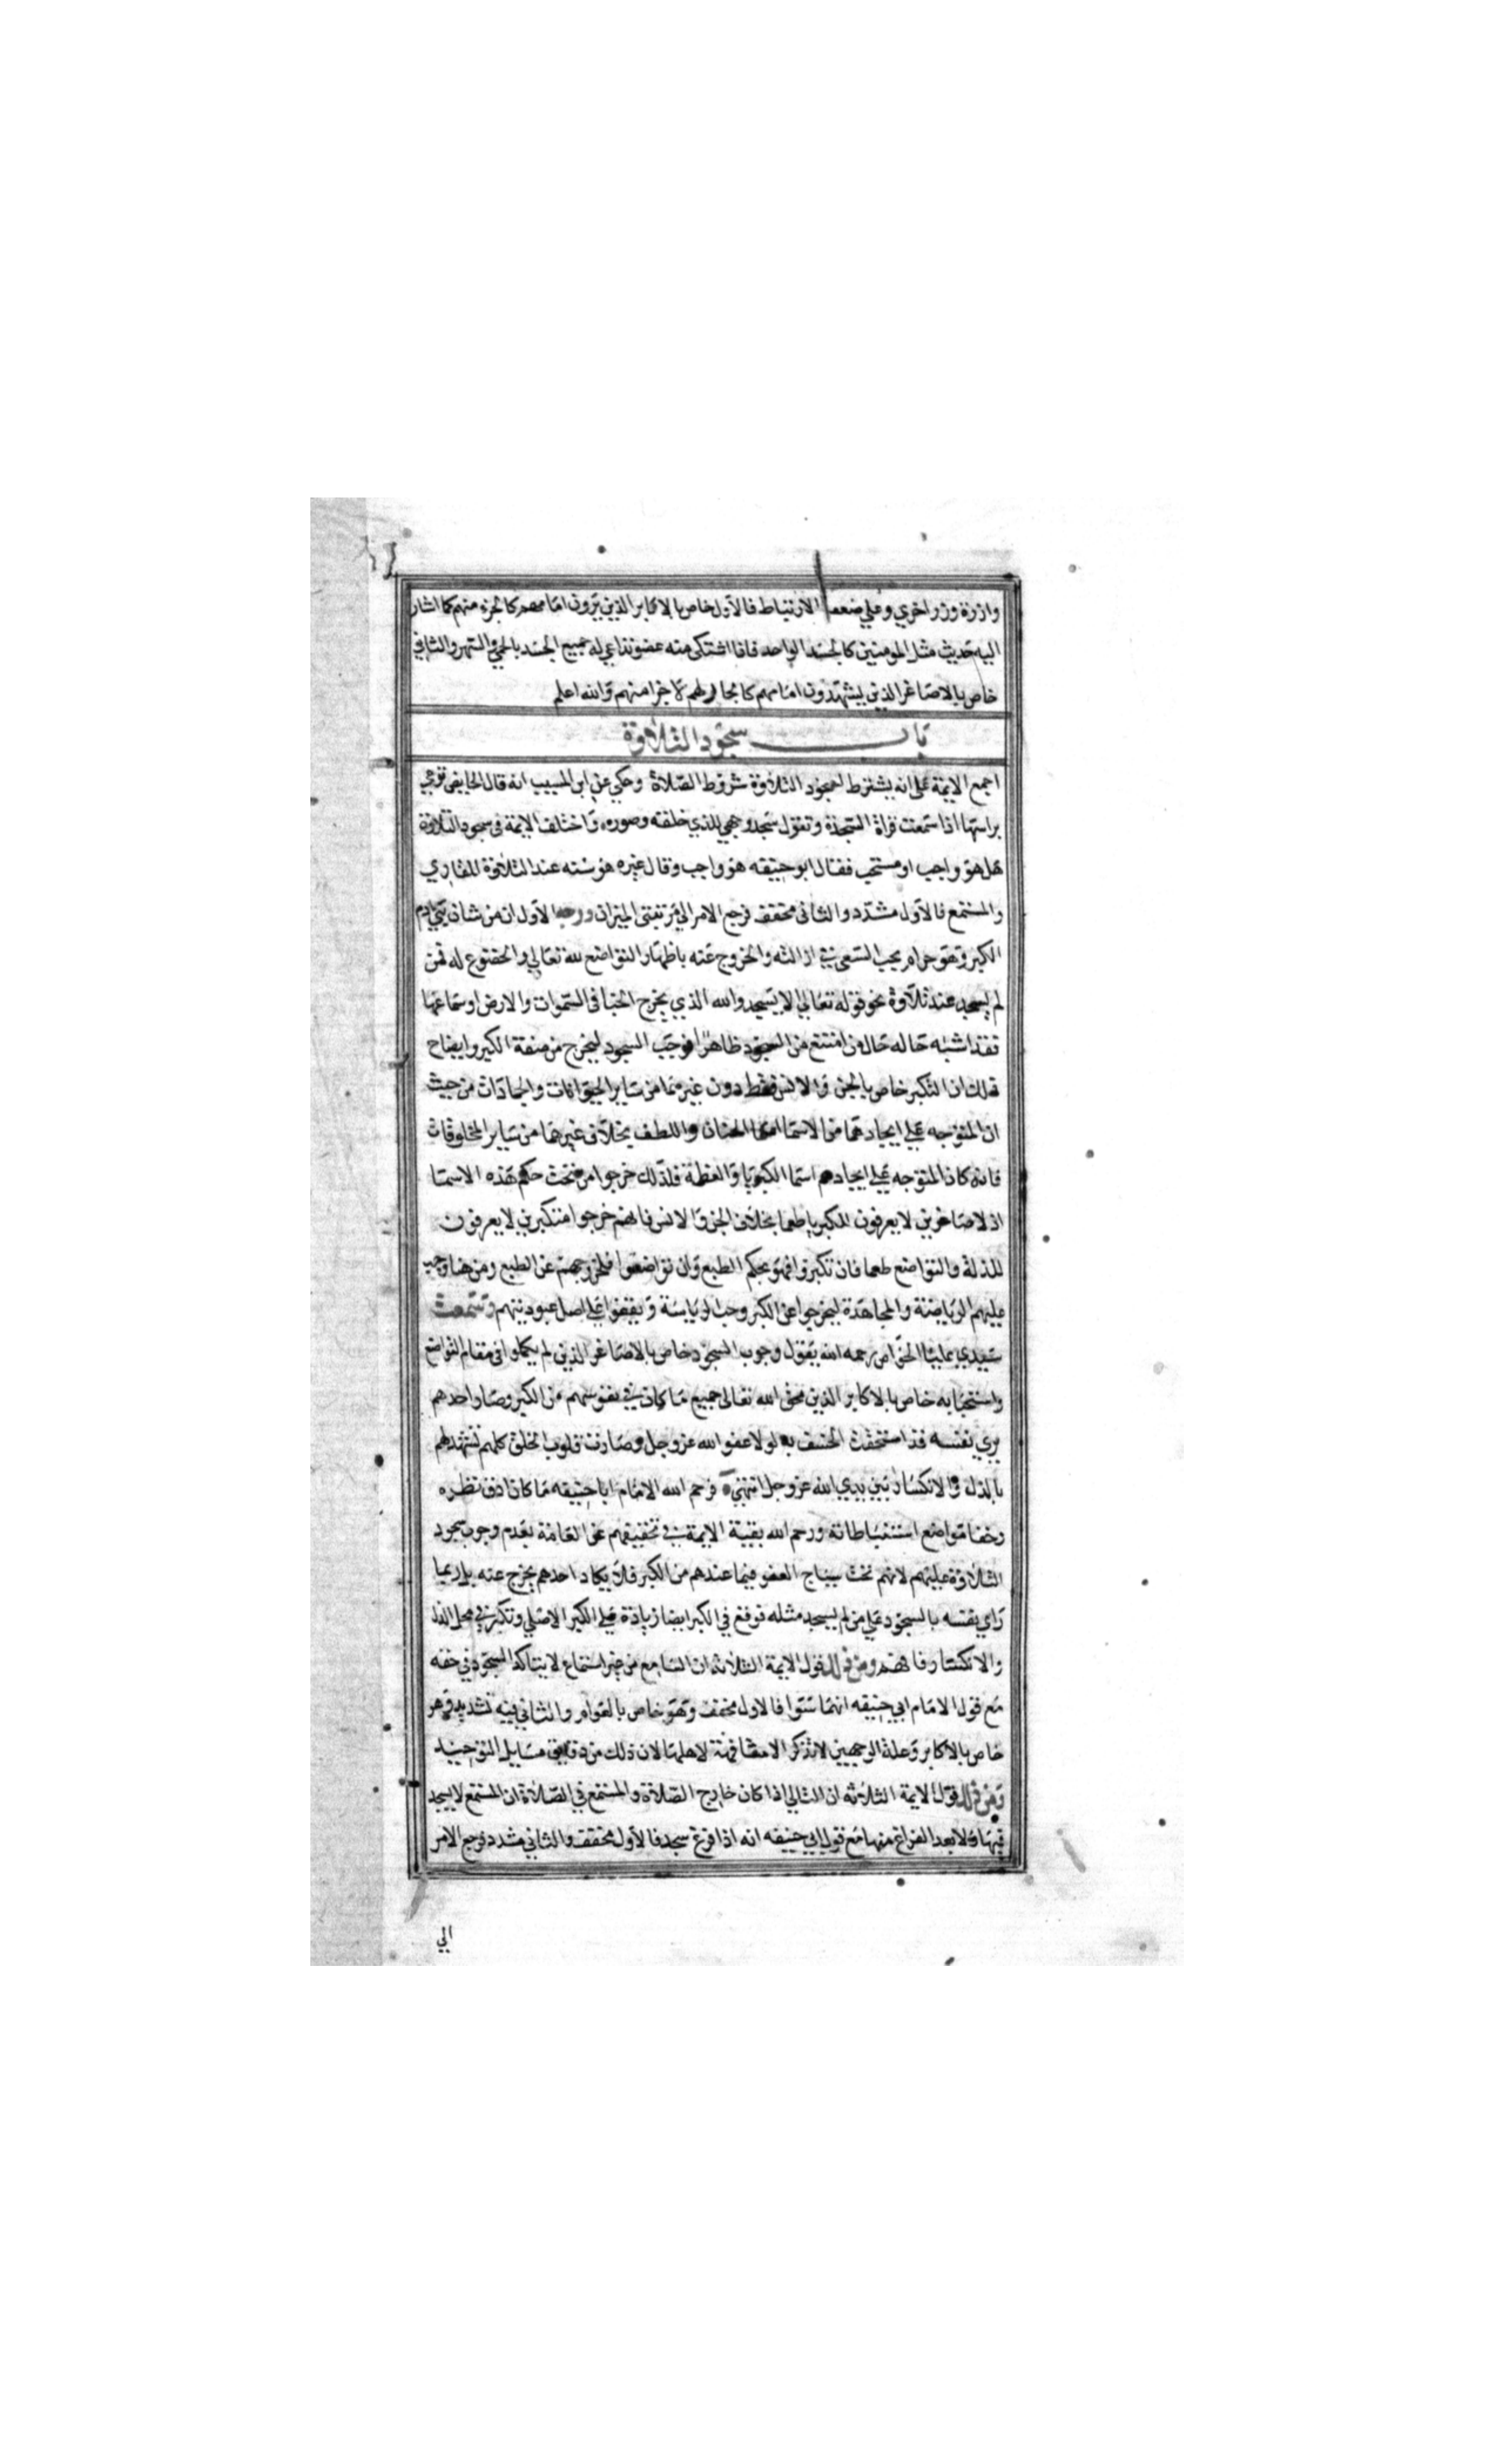 وازرة وزر اخري وعلي ضعف الارتباط فالاول خاص بالاكابر الذين يرون امامهم كالجزء منهم كما اشار
اليه حديث مثل المومنين كالجسد الواحد فاذا اشتكي منه عضو تداعي له جميع الجسد بالحمي والسهر والثاني
خاص بالاصاغر الذين يشهدون امامهم كالجار لهم لا جزا منهم والله اعلم
باب سجود التلاوة
اجمع الايمة علي انه يشترط لسجود التلاوة شروط الصلاة وحكي عن ابن المسيب انه قال الحايض تومي
براسها اذا سمعت قراة السجدة وتقول سجد وجهي للذي خلقه وصوره واختلف الايمة في سجود التلاوة
هل هو واجب او مستحب فقال ابو حنيفه هو واجب وقال غيره هو سنه عند التلاوة للقاري
والمستمع فالاول مشدد والثاني مخفف فرجع الامر الي مرتبتي الميزان ووجه الاول ان من شان بني ادم
الكبر وهو حرام يجب السعي في ازالته والخروج عنه باظهار التواضع لله تعالي والخضوع له فمن
لم يسجد عند تلاوة نحو قوله تعالي الا يسجدوا لله الذي يخرج الخبا في السموات والارض او سماعها
فقد اشبه حاله حال من امتنع من السجود ظاهرا فوجب السجود ليخرج من صفة الكبر وايضاح
ذلك ان التكبر خاص بالجن والانس فقط دون غيرهما من ساير الحيوانات والجمادات من حيث
ان المتوجه علي ايجادهما من الاسما اسما الحنان واللطف بخلاف غيرهما من ساير المخلوقات
فانه كان المتوجه علي ايجادهم اسما الكبريا والعظمة فلذلك خرجوا من تحت حكم هذه الاسما
اذلا صاغرين لا يعرفون للكبريا طعما بخلاف الجن والانس فانهم خرجوا متكبرين لا يعرفون
للذلة والتواضع طعما فان تكبروا فهو بحكم الطبع وان تواضعوا فلخروجهم عن الطبع ومن هنا وجب
عليهم الرياضة والمجاهدة ليخرجوا عن الكبر وحب الرياسة ويقفوا علي اصل عبوديتهم وسمعت
سيدي عليا الخواص رحمه الله يقول وجوب السجود خاص بالاصاغر الذين لم يكملوا في مقام التواضع
واستحبابه خاص بالاكابر الذين محي الله تعالي جميع ما كان في نفوسهم من الكبر وصار احدهم
يري نفسه قد استحقت الخسف به لولا عفو الله عز وجل وصارت قلوب الخلق كلهم تشهد لهم
بالذل والانكسار بين يدي الله عز وجل انتهي فرحم الله الامام ابا حنيفه ما كان ادق نظره
وخفا مواضع استنباطاته ورحم الله بقية الايمة في تخفيفهم عن العامة بعدم وجوب سجود
التلاوة عليهم لانهم تحت سياج العفو فيما عندهم من الكبر فلا يكاد احدهم يخرج عنه بل ربما
راي نفسه بالسجود علي من لم يسجد مثله فوقع في الكبر ايضا زيادة علي الكبر الاصلي وتكبر في محل الذل
والانكسار فافهم ومن ذلك قول الايمة الثلاثه ان السامع من غير استماع لا يتاكد السجود في حقه
مع قول الامام ابي حنيفه انهما سوا فالاول مخفف وهو خاص بالعوام والثاني فيه تشديد وهو
خاص بالاكابر وعلة الوجهين لا تذكر الا مشافهة لاهلها لان ذلك من دقايق مسايل التوحيد
ومن ذلك قول الايمة الثلاثه ان التالي اذا كان خارج الصلاة والمستمع في الصلاة ان المستمع لا يسجد
فيها ولا بعد الفراغ منها مع قول ابي حنيفه انه اذا فرغ سجد فالاول مخفف والثاني مشدد فرجع الامر
الي